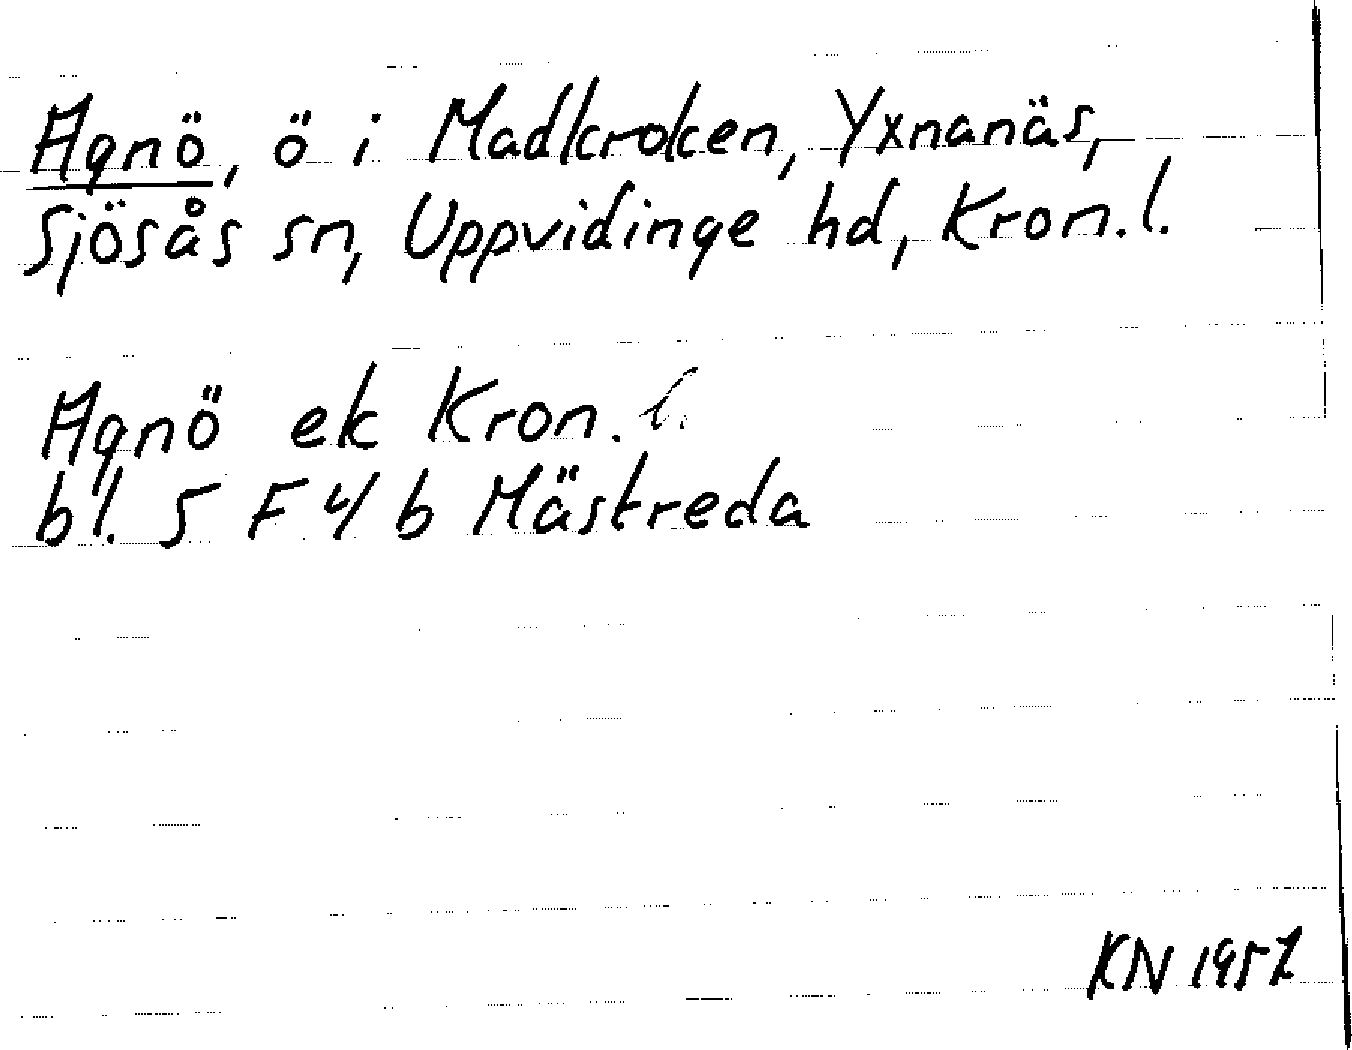 Agnö, ö i Madkroken, Yxnanäs,
Sjösås sn, Uppvidinge hd, Kron.l.
Agnö ek Kron.l.
bl. 5 F 4 b Mästreda
KN 1957